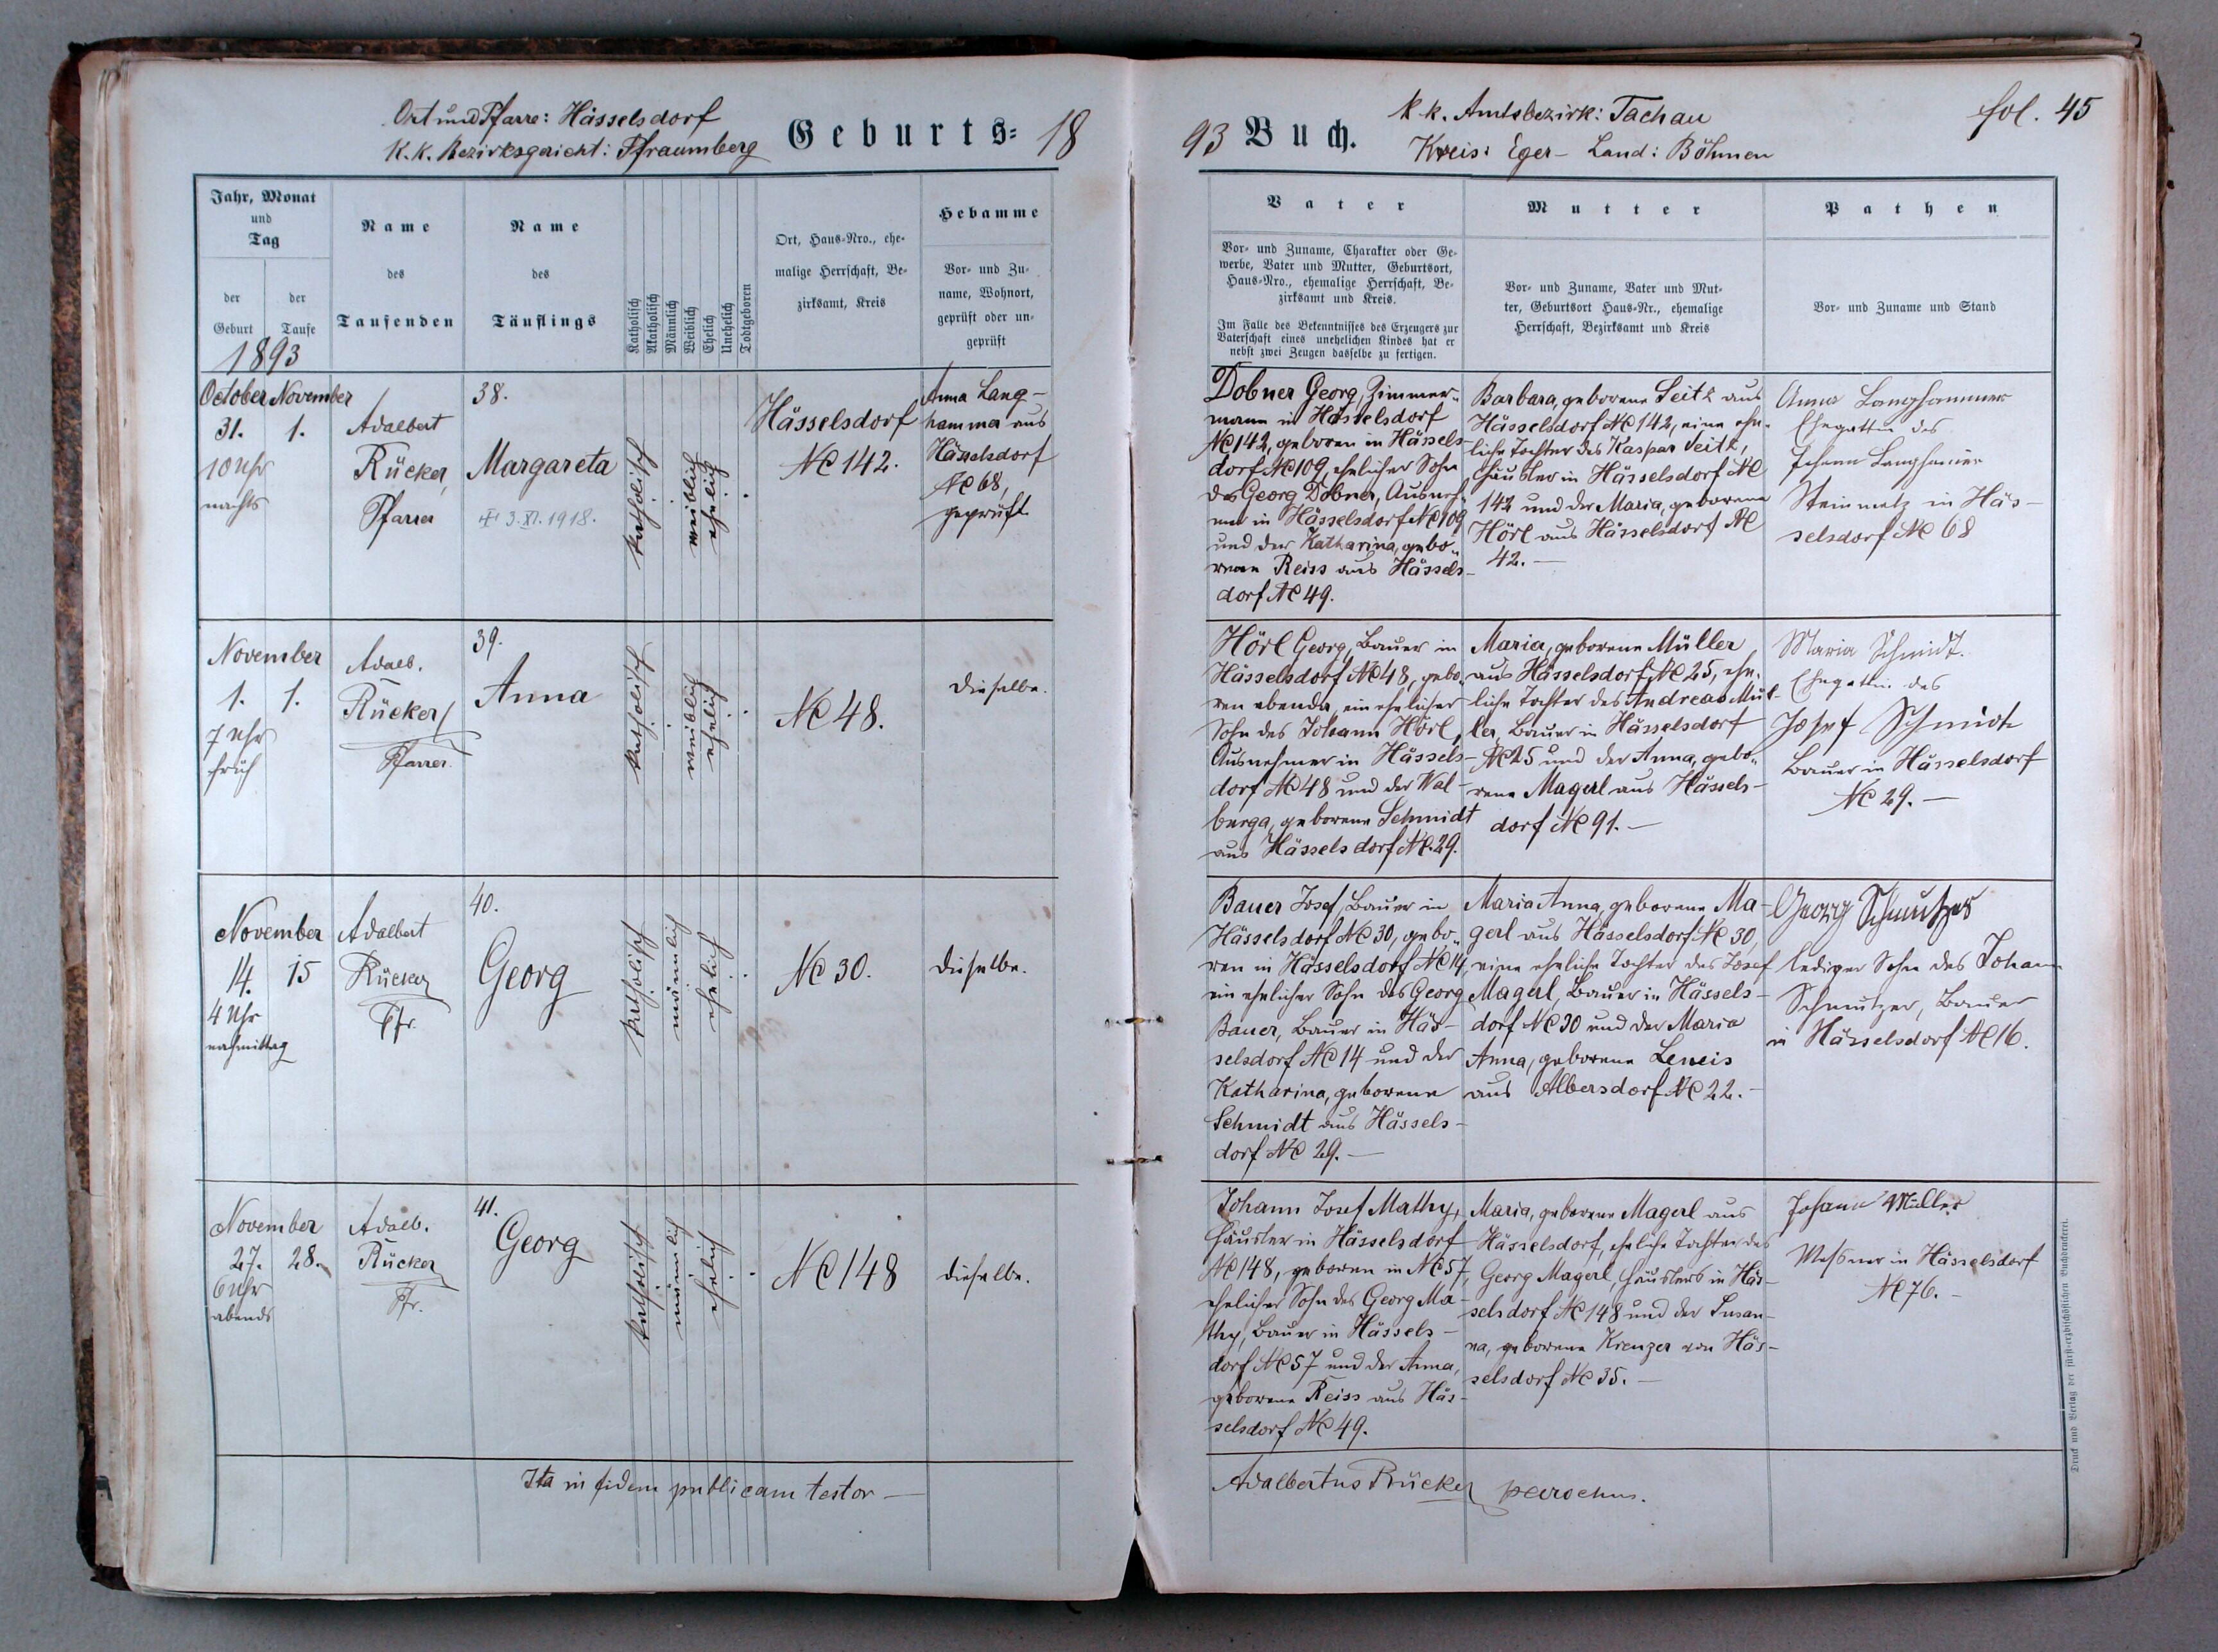 Ort und Pfarre: Hässelsdorf
K. K. Bezirksgericht: Pfraumberg
Geburts= 18
Jahr, Monat
und
Tag
der
Geburt
der
Taufe
Name
des
Taufenden
Name
des
Täuflings
Katholisch
Akatholisch
Männlich
Weiblich
Ehelich
Unehelich
Todtgeboren
Ort, Haus-Nro., ehe-
malige Herrschaft, Be-
zirksamt, Kreis
Hebamme
Vor- und Zu-
name, Wohnort,
geprüft oder un-
geprüft
1893
October November
31. 1.
10 Uhr
nachts
Adalbert
Rücker,
Pfarrer
38.
Margareta
3. XI. 1918.
katholisch
weiblich
ehelich
Hässelsdorf
No 142.
Anna Lang-
hammer aus
Hässelsdorf
No 68,
geprüft
November
1. 1.
7 Uhr
früh
Adalb.
Rücker
Pfarrer.
39.
Anna
katholisch
weiblich
ehelich
No 48.
dieselbe.
November
14. 15
4 Uhr
nachmittag
Adalbert
Rücker
Pfr.
40.
Georg
katholisch
männlich
ehelich
No 30.
dieselbe.
November
27. 28.
6 Uhr
abends
Adalb.
Rücker
Pfr.
41.
Georg
katholisch
männlich
ehelich
No 148
dieselbe.
Ita in fidem publicam testor —
93 Buch.
k. k. Amtsbezirk: Tachau
Kreis: Eger – Land: Böhmen
fol. 45
Vater
Vor- und Zuname, Charakter oder Ge-
werbe, Vater und Mutter, Geburtsort,
Haus-Nro., ehemalige Herrschaft, Be-
zirksamt und Kreis.
Im Falle des Bekenntnisses des Erzeugers zur
Vaterschaft eines unehelichen Kindes hat er
nebst zwei Zeugen dasselbe zu fertigen.
Mutter
Vor- und Zuname, Vater und Mut-
ter, Geburtsort Haus-Nr., ehemalige
Herrschaft, Bezirksamt und Kreis
Pathen
Vor- und Zuname und Stand
Dobner Georg, Zimmer-
mann in Hässelsdorf
No 142, geboren in Hässels-
dorf No 109, ehelicher Sohn
des Georg Dobner, Ausneh-
mer in Hässelsdorf No 109
und der Katharina, gebo-
rene Reiss aus Hässels-
dorf No 49.
Barbara, geborene Seitz aus
Hässelsdorf No 142, eine ehe-
liche Tochter des Kaspar Seitz,
Häusler in Hässelsdorf No
142 und der Maria, geborene
Hörl aus Hässelsdorf No
42. —
Anna Langhammer
Ehegattin des
Johann Langhammer
Steinmetz in Häs-
selsdorf No 68
Hörl Georg, Bauer in
Hässelsdorf No 48, gebo-
ren ebenda, ein ehelicher
Sohn des Johann Hörl,
Ausnehmer in Hässels-
dorf No 48 und der Wal-
burga, geborene Schmidt
aus Hässelsdorf No. 29.
Maria, geborene Müller
aus Hässelsdorf No 25, ehe-
liche Tochter des Andreas Mül-
ler, Bauer in Hässelsdorf
No 25 und der Anna, gebo-
rene Magerl aus Hässels-
dorf No 91. —
Maria Schmidt.
Ehegattin des
Josef Schmidt
Bauer in Hässelsdorf
No 29. —
Bauer Josef, Bauer in
Hässelsdorf No 30, gebo-
ren in Hässelsdorf No 14,
ein ehelicher Sohn des Georg
Bauer, Bauer in Häs-
selsdorf No 14 und der
Katharina, geborene
Schmidt aus Hässels-
dorf No 29. —
Maria Anna, geborene Ma-
gerl aus Hässelsdorf No 30,
eine eheliche Tochter des Josef
Magerl, Bauer in Hässels-
dorf No 30 und der Maria
Anna, geborene Leneis
aus Albersdorf No 22. —
Georg Schmutzer
lediger Sohn des Johann
Schmutzer, Bauer
in Hässelsdorf No 16.
Johann Josef Mathy,
Häusler in Hässelsdorf
No 148, geboren in No 57,
ehelicher Sohn des Georg Ma-
thy, Bauer in Hässels-
dorf No 57 und der Anna,
geborene Reiss aus Häs-
selsdorf No 49.
Maria, geborene Magerl aus
Hässelsdorf, eheliche Tochter des
Georg Magerl, Häuslers in Häs-
selsdorf No 148 und der Susan-
na, geborene Kreuzer von Häs-
selsdorf No 35. —
Johann Müller
Messner in Hässelsdorf
No 76. –
Adalbertus Rücker parochus.
Druck und Verlag der fürst-erzbischöflichen Buchdruckerei.